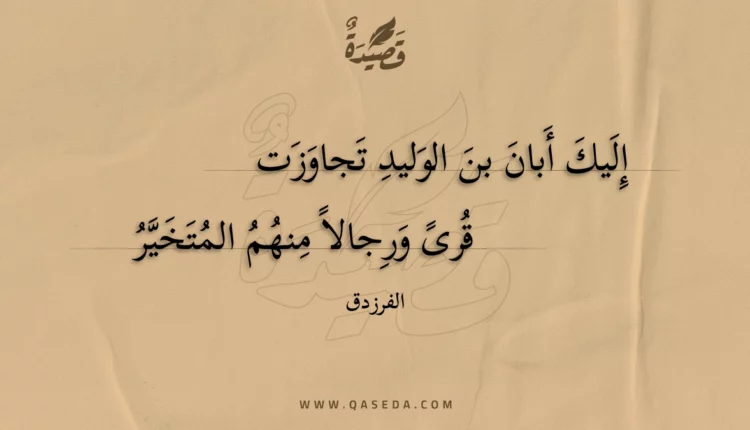 قَصِيدَةٌ
إِلَيكَ أَبانَ بنَ الوَليدِ تَجاوَزَت
قُرىً وَرِجالاً مِنهُمُ المُتَخَيَّرُ
الفرزدق
WWW.QASEDA.COM